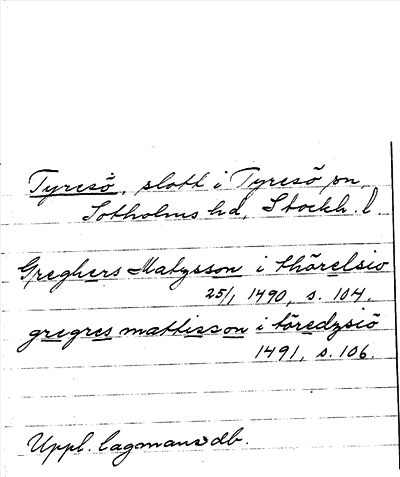 Tyresö, slott i Tyresö sn,
Sotholms hd, Stockh. l.
Greghers Matysson i thörelsio
25/1, 1490, s. 104.
gregres mattisson i töredzsiö
1491, s. 106.
Uppl. lagmansdb.